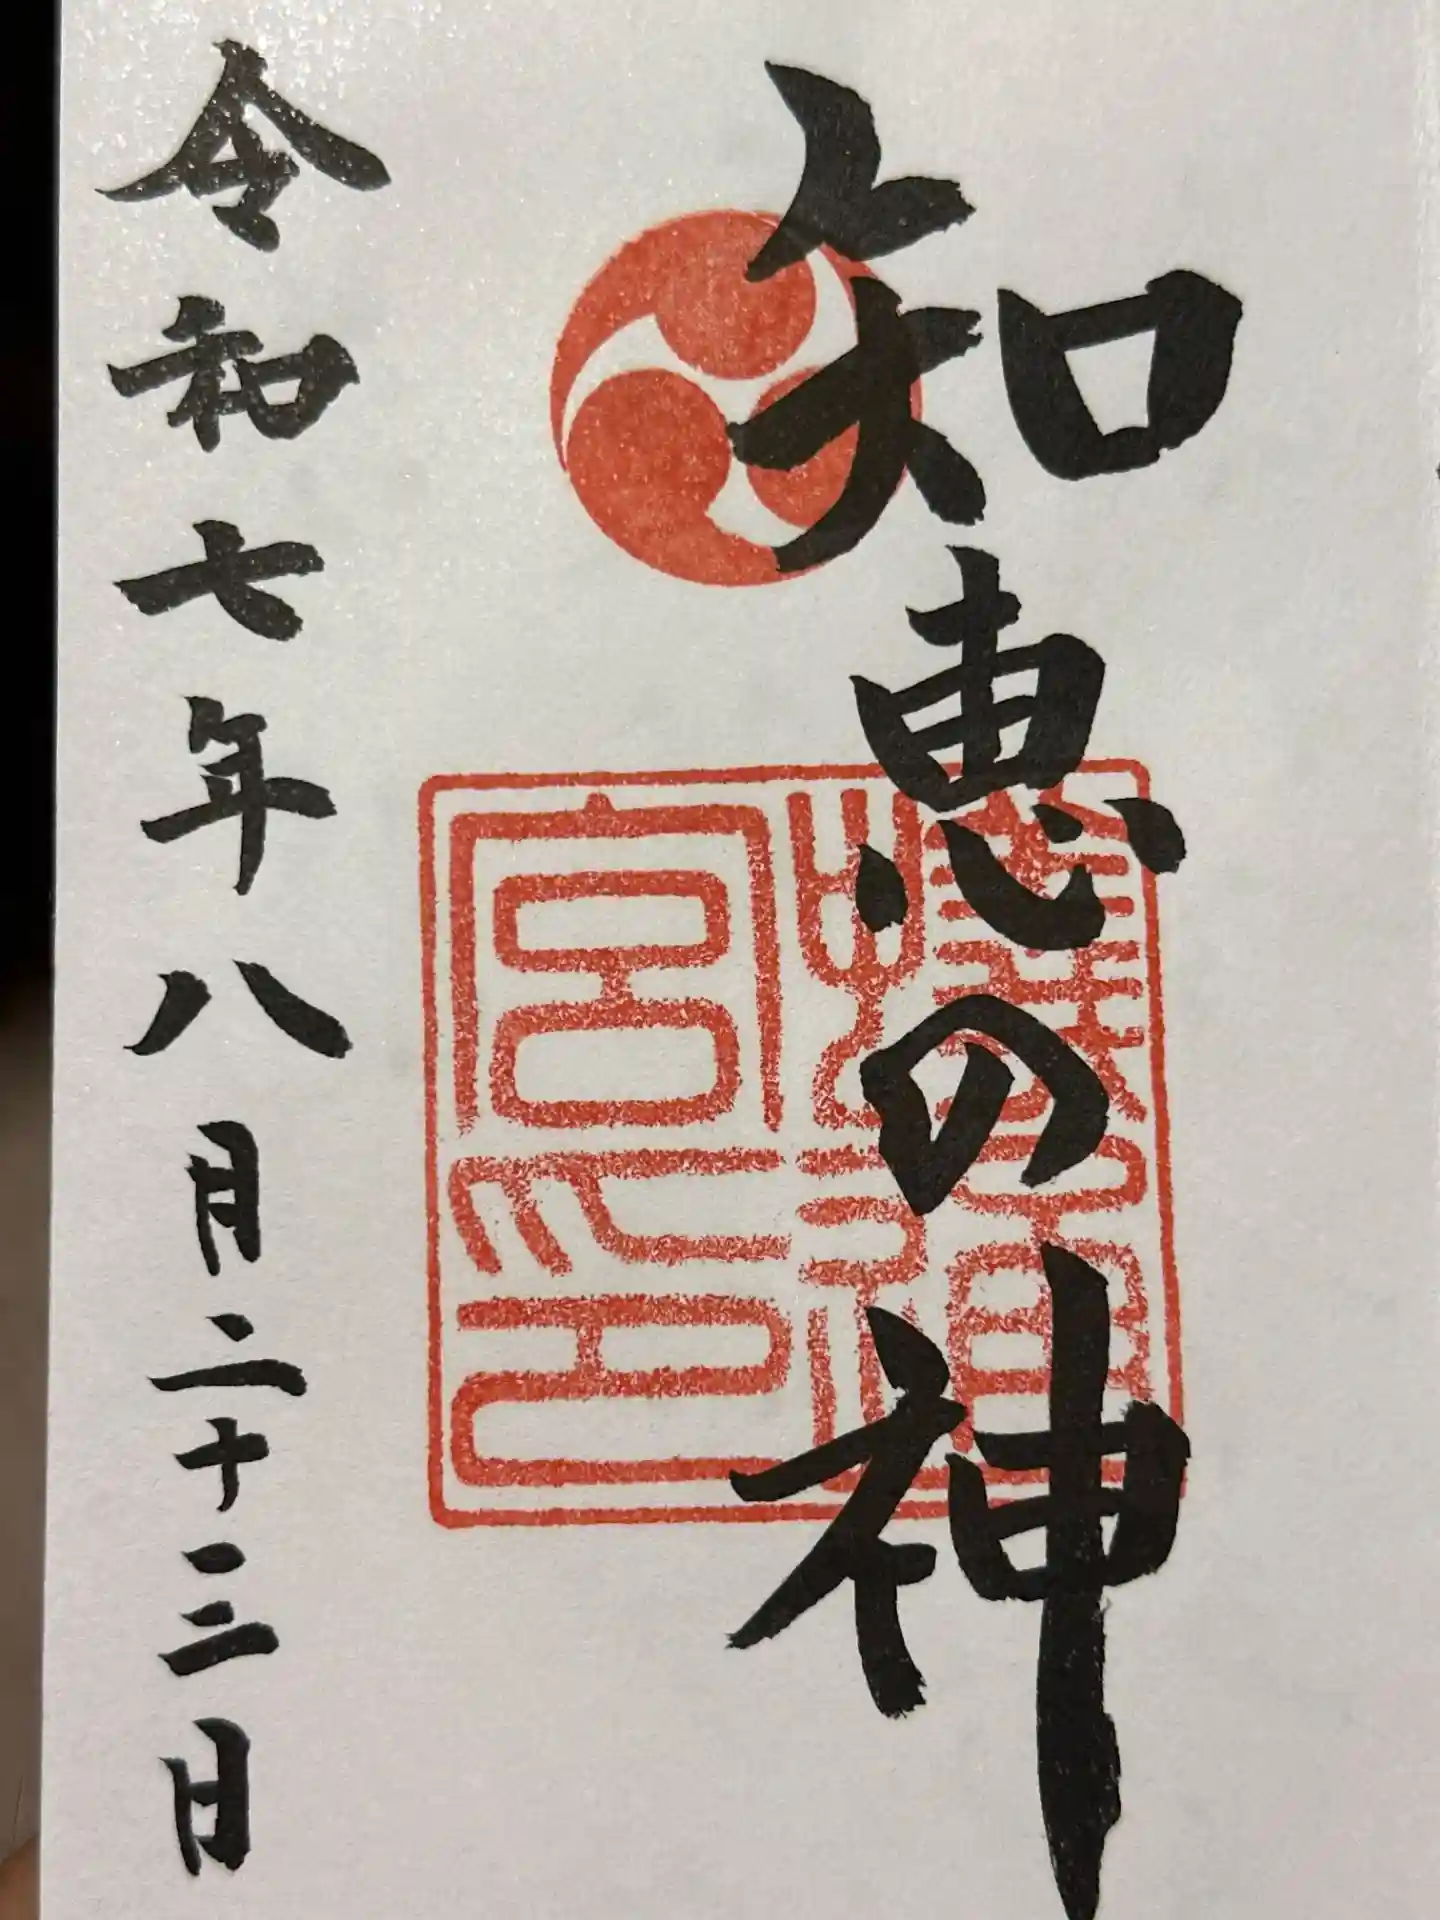 知恵の神
令和七年八月二十三日